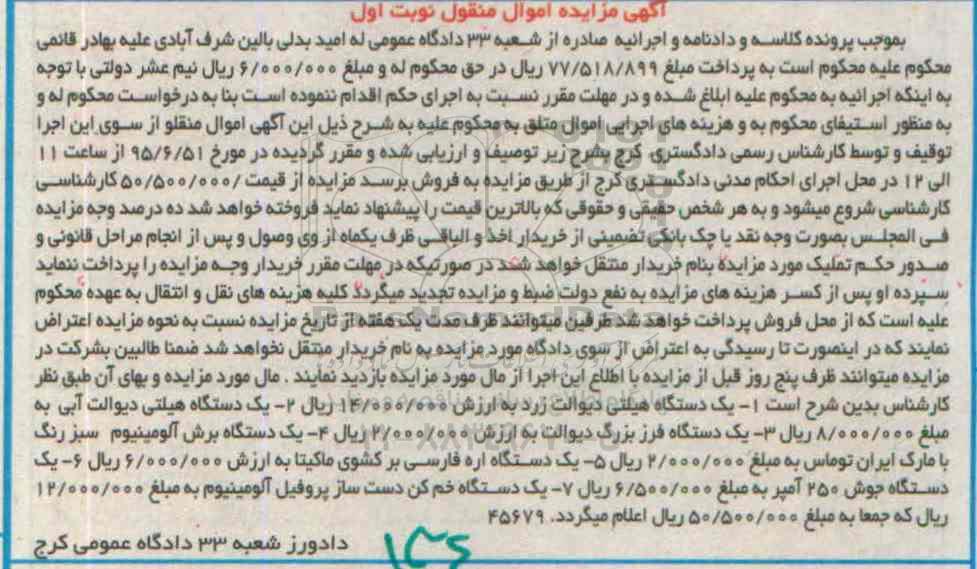 آگهی مزایده اموال منقول نوبت اول
بموجب پرونده کلاسه و دادنامه و اجرائیه صادره از شعبه ۳۳ دادگاه عمومی له امید بدلی بالین شرف آبادی علیه بهادر قائمی
محکوم علیه محکوم است به پرداخت مبلغ ۷۷/۵۱۸/۸۹۹ ریال در حق محکوم له و مبلغ ۶/۰۰۰/۰۰۰ ریال نیم عشر دولتی با توجه
به اینکه اجرائیه به محکوم علیه ابلاغ شده و در مهلت مقرر نسبت به اجرای حکم اقدام ننموده است بنا به درخواست محکوم له و
به منظور استیفای محکوم به و هزینه های اجرایی اموال متلق به محکوم علیه به شرح ذیل این آگهی اموال منقلو از سوی این اجرا
توقیف و توسط کارشناس رسمی دادگستری کرج بشرح زیر توصیف و ارزیابی شده و مقرر گردیده در مورخ ۹۵/۶/۵۱ از ساعت ۱۱
الی ۱۲ در محل اجرای احکام مدنی دادگستری کرج از طریق مزایده به فروش برسد مزایده از قیمت /۵۰/۵۰۰/۰۰۰ کارشناسی
کارشناسی شروع میشود و به هر شخص حقیقی و حقوقی که بالاترین قیمت را پیشنهاد نماید فروخته خواهد شد ده درصد وجه مزایده
فی المجلس بصورت وجه نقد یا چک بانکی تضمینی از خریدار اخذ و الباقی ظرف یکماه از وی وصول و پس از انجام مراحل قانونی و
صدور حکم تملیک مورد مزایده بنام خریدار منتقل خواهد شد در صورتیکه در مهلت مقرر خریدار وجه مزایده را پرداخت ننماید
سپرده او پس از کسر هزینه های مزایده به نفع دولت ضبط و مزایده تجدید میگردد کلیه هزینه های نقل و انتقال به عهده محکوم
علیه است که از محل فروش پرداخت خواهد شد طرفین میتوانند ظرف مدت یک هفته از تاریخ مزایده نسبت به نحوه مزایده اعتراض
نمایند که در اینصورت تا رسیدگی به اعتراض از سوی دادگاه مورد مزایده به نام خریدار منتقل نخواهد شد ضمنا طالبین بشرکت در
مزایده میتوانند ظرف پنج روز قبل از مزایده با اطلاع این اجرا از مال مورد مزایده بازدید نمایند . مال مورد مزایده و بهای آن طبق نظر
کارشناس بدین شرح است ۱- یک دستگاه هیلتی دیوالت زرد به ارزش ۱۴/۰۰۰/۰۰۰ ریال ۲- یک دستگاه هیلتی دیوالت آبی به
مبلغ ۸/۰۰۰/۰۰۰ ریال ۳- یک دستگاه فرز بزرگ دیوالت به ارزش ۲/۰۰۰/۰۰۰ ریال ۴- یک دستگاه برش آلومینیوم سبز رنگ
با مارک ایران توماس به مبلغ ۲/۰۰۰/۰۰۰ ریال ۵- یک دستگاه اره فارسی بر کشوی ماکیتا به ارزش ۶/۰۰۰/۰۰۰ ریال ۶- یک
دستگاه جوش ۲۵۰ آمپر به مبلغ ۶/۵۰۰/۰۰۰ ریال ۷- یک دستگاه خم کن دست ساز پروفیل آلومینیوم به مبلغ ۱۲/۰۰۰/۰۰۰
ریال که جمعا به مبلغ ۵۰/۵۰۰/۰۰۰ ریال اعلام میگردد. ۴۵۶۷۹
دادورز شعبه ۳۳ دادگاه عمومی کرج